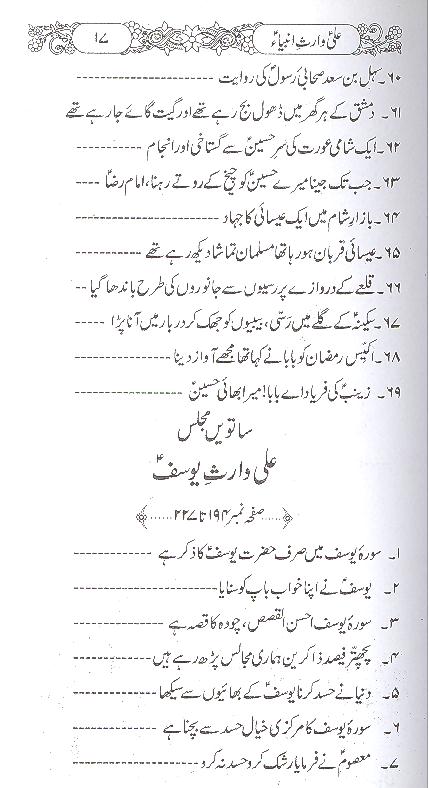 علیؑ وارثِ انبیاءؑ
۱۷
۶۰۔ سہل بن سعد صحابی رسولؐ کی روایت
۶۱۔ دمشق کے ہر گھر میں ڈھول بج رہے تھے اور گیت گائے جا رہے تھے
۶۲۔ ایک شامی عورت کی سرِ حسینؑ سے گستاخی اور انجام
۶۳۔ جب تک جینا میرے حسینؑ کو چیخ کے روتے رہنا، امام رضاؑ
۶۴۔ بازارِ شام میں ایک عیسائی کا جہاد
۶۵۔ عیسائی قربان ہو رہا تھا مسلمان تماشا دیکھ رہے تھے
۶۶۔ قلعے کے دروازے پر رسیوں سے جانوروں کی طرح باندھا گیا
۶۷۔ سکینہؑ کے گلے میں رسّی، بیبیوں کو جھک کر دربار میں آنا پڑا
۶۸۔ اکیّس رمضان کو بابا نے کہا تھا مجھے آواز دینا
۶۹۔ زینبؑ کی فریاد اے بابا! میرا بھائی حسینؑ
ساتویں مجلس
علی وارثِ یوسفؑ
صفحہ نمبر ۱۹۴ تا ۲۲۷
۱۔ سورۂ یوسف میں صرف حضرت یوسفؑ کا ذکر ہے
۲۔ یوسفؑ نے اپنا خواب باپ کو سنایا
۳۔ سورۂ یوسف احسن القصص، چودہ کا قصہ ہے
۴۔ پچھتّر فیصد ذاکرین ہماری مجالس پڑھ رہے ہیں
۵۔ دنیا نے حسد کرنا یوسفؑ کے بھائیوں سے سیکھا
۶۔ سورۂ یوسف کا مرکزی خیال حسد سے بچنا ہے
۷۔ معصومؑ نے فرمایا رشک کرو حسد نہ کرو